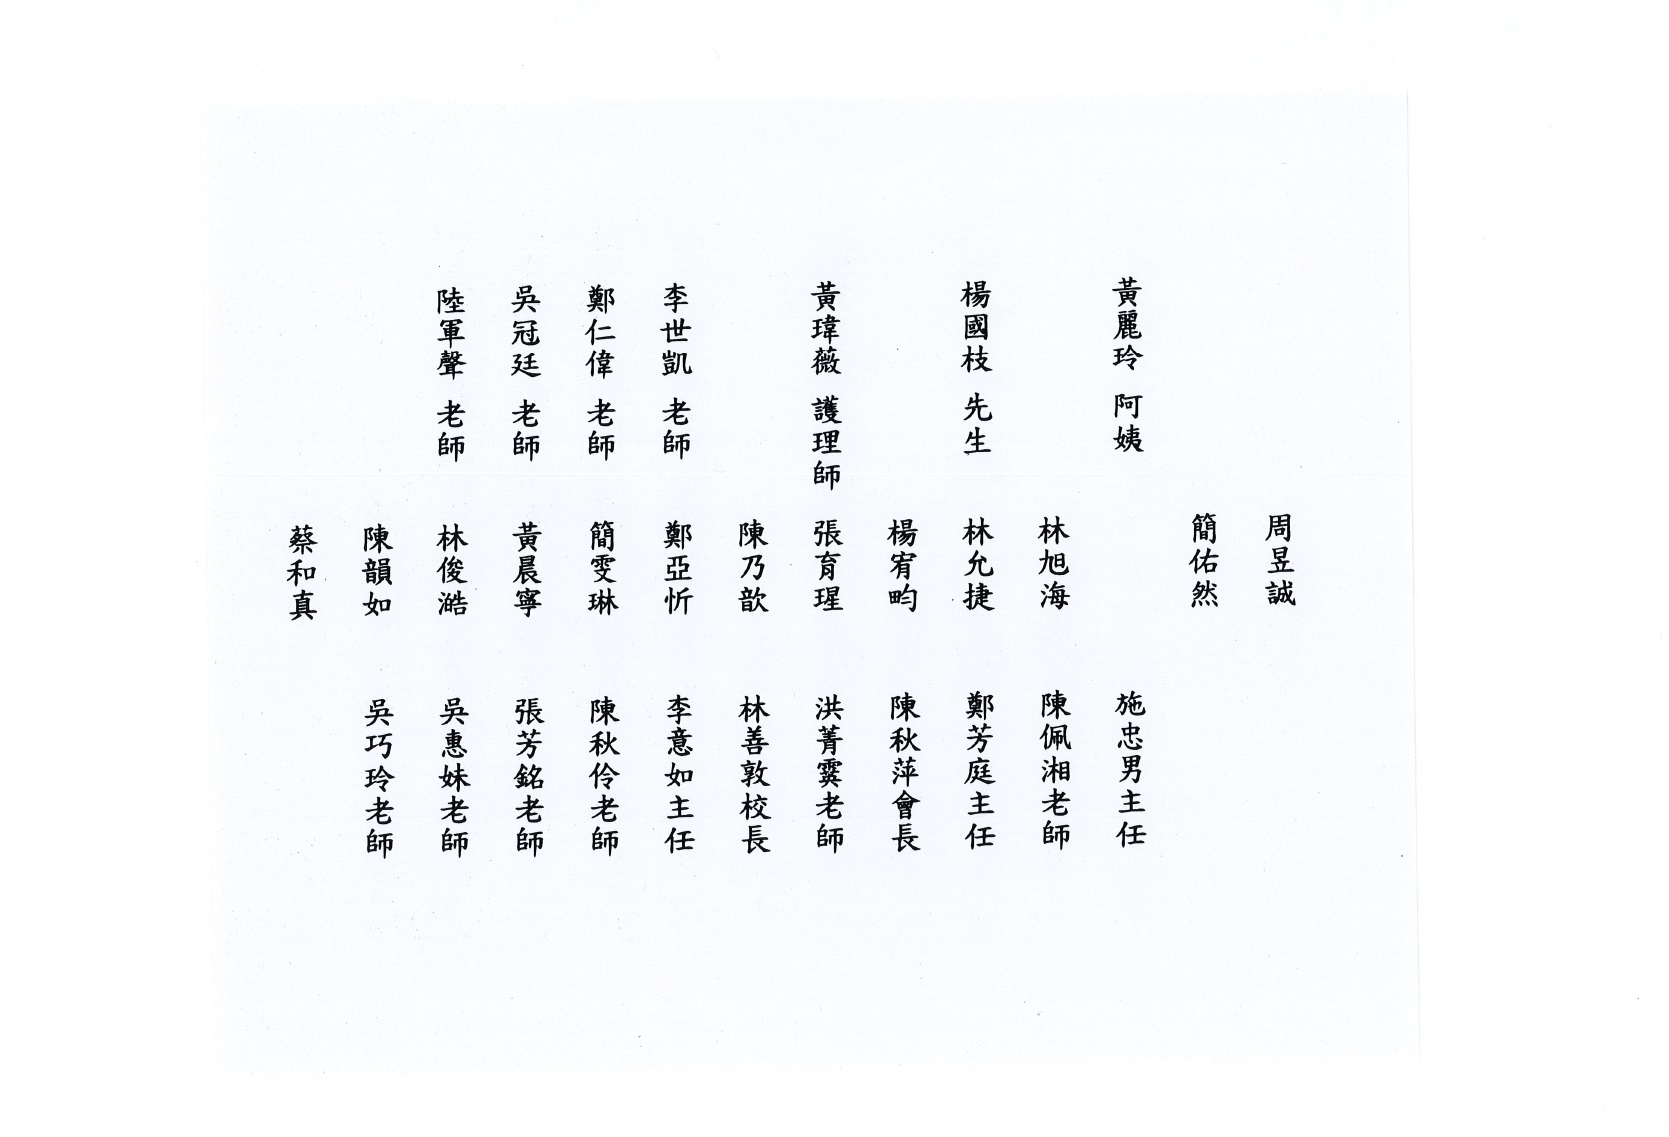 黃麗玲 阿姨
楊國枝 先生
黃瑋薇 護理師
李世凱 老師
鄭仁偉 老師
吳冠廷 老師
陸軍聲 老師
周昱誠
簡佑然
林旭海
林允捷
楊宥畇
張育瑆
陳乃歆
鄭亞忻
簡雯琳
黃晨寧
林俊澔
陳韻如
蔡和真
施忠男主任
陳佩湘老師
鄭芳庭主任
陳秋萍會長
洪菁霙老師
林善敦校長
李意如主任
陳秋伶老師
張芳銘老師
吳惠妹老師
吳巧玲老師